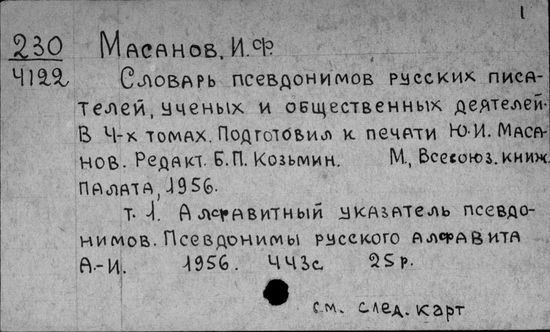 1
230 Масанов, И.Ф.
4122 Словарь псевдонимов русских писа-
телей, ученых и общественных деятелей.
В 4-х томах. Подготовил к печати Ю.И. Маса-
нов. Редакт. Б.П. Козьмин. М., Всесоюз. книж.
палата, 1956.
т. 1. Алфавитный указатель псевдо-
нимов. Псевдонимы русского алфавита
А.-И. 1956. 443с 25р.
см. след. карт